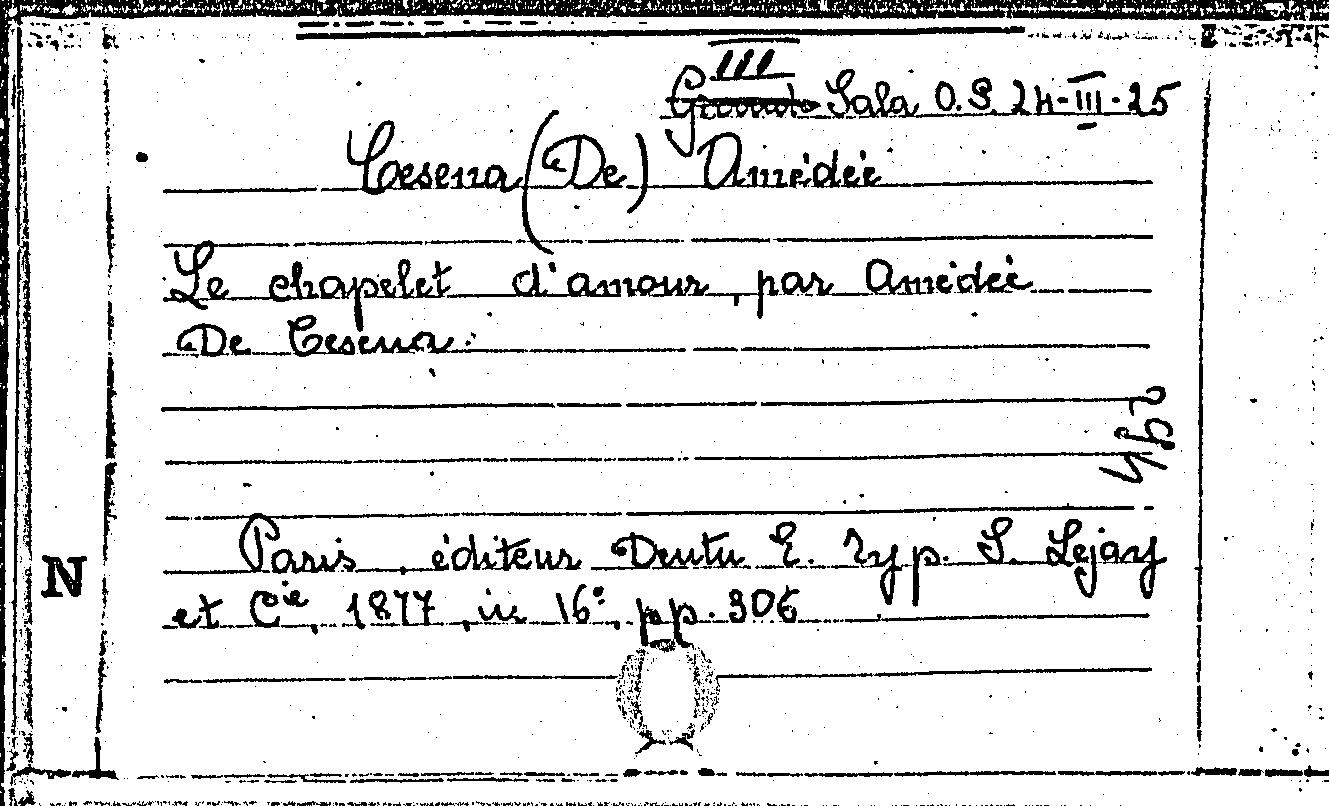 III
Grande Sala O.S. 24-III-25
Cesena (De) Amédée
Le chapelet d'amour, par Amédée
De Cesena.
Paris, éditeur Dentu E. Typ. S. Lejay
N
et Cie, 1877, in 16°, pp. 306